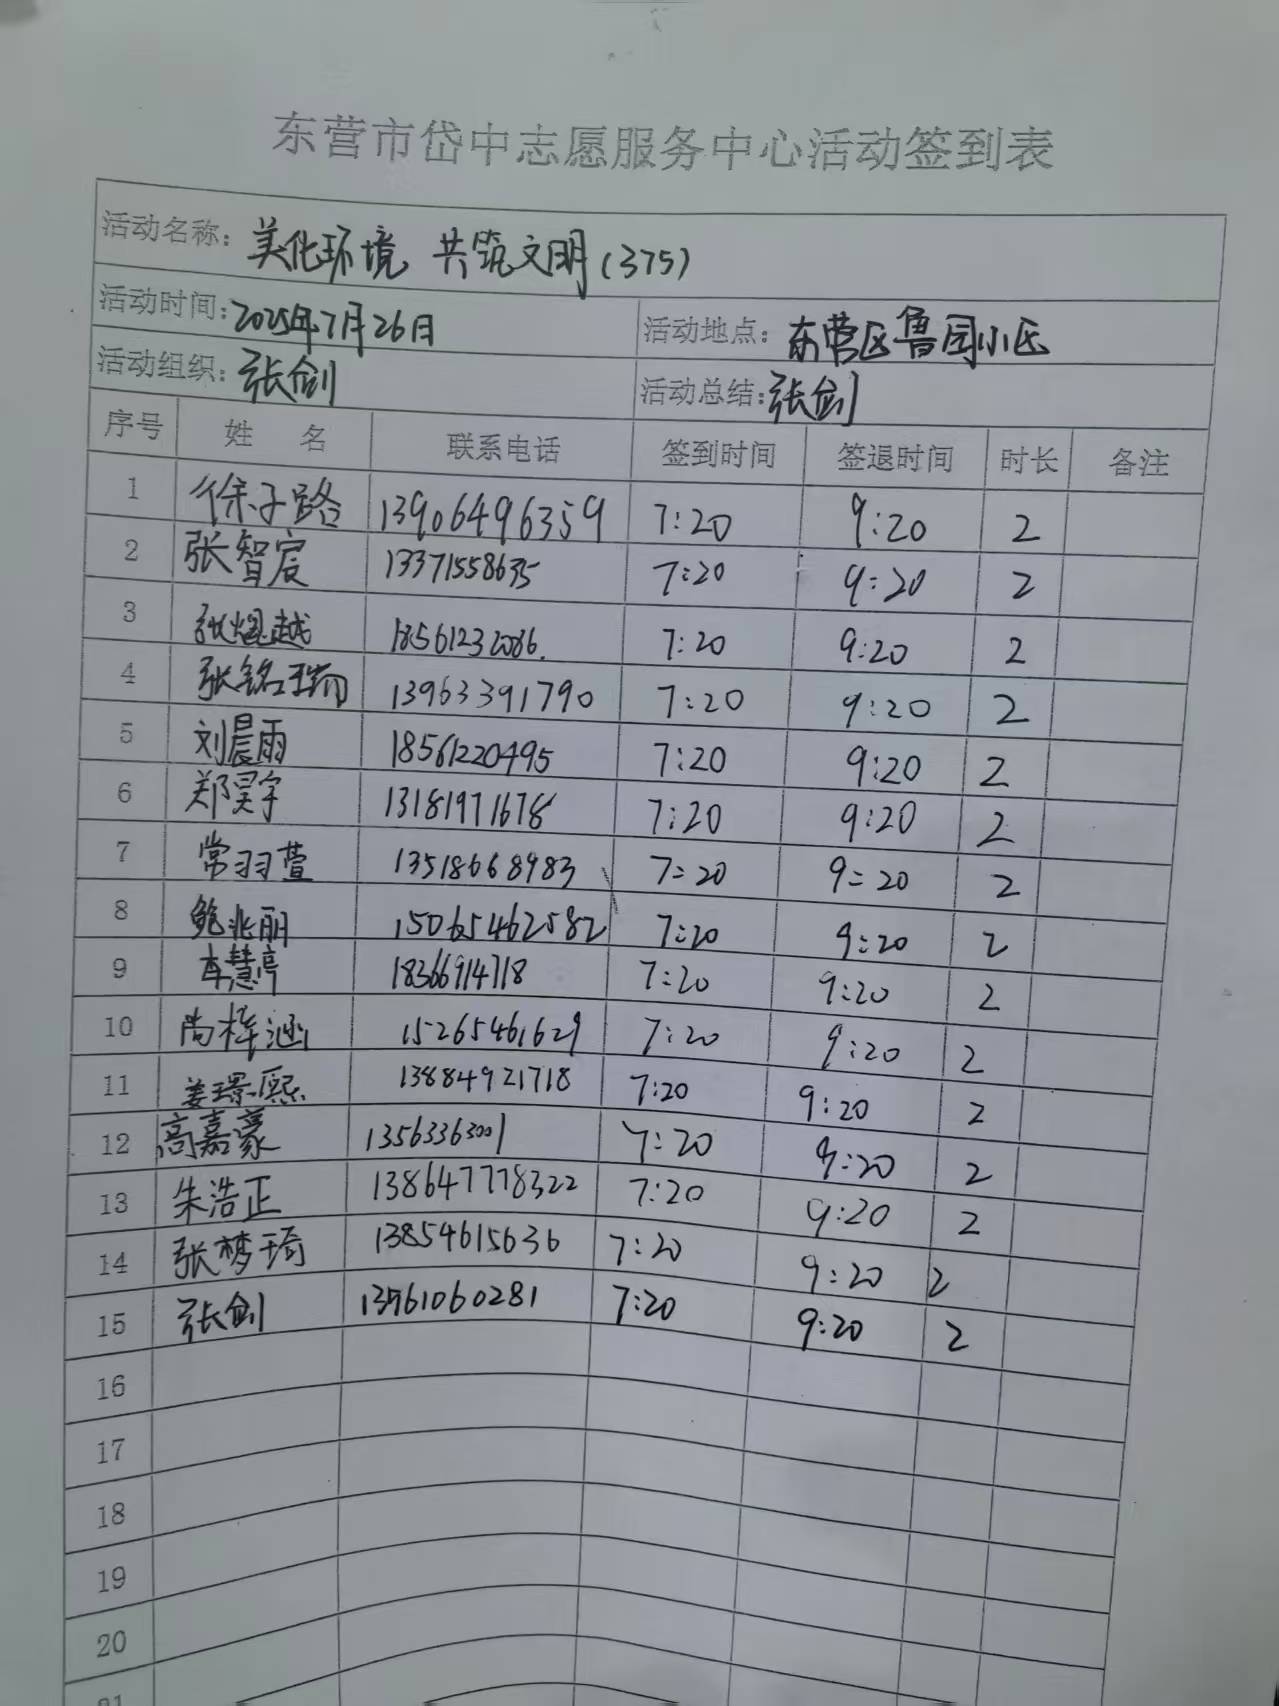 东营市岱中志愿服务中心活动签到表
活动名称：美化环境 共筑文明(375)
活动时间：2025年7月26日 活动地点：东营区鲁园小区
活动组织：张剑 活动总结：张剑
序号 姓 名 联系电话 签到时间 签退时间 时长 备注
1 徐子路 13906496359 7:20 9:20 2
2 张智宸 13371558635 7:20 9:20 2
3 张焜越 18561232086. 7:20 9:20 2
4 张铭瑞 13963391790 7:20 9:20 2
5 刘晨雨 18561220495 7:20 9:20 2
6 郑昊宇 13181971678 7:20 9:20 2
7 常羽萱 13518668983 7:20 9:20 2
8 鲍兆丽 15065462582 7:20 9:20 2
9 慧亭 18366914718 7:20 9:20 2
10 尚梓涵 15265461629 7:20 9:20 2
11 姜璟熙 13884921718 7:20 9:20 2
12 高嘉豪 13563363001 7:20 9:20 2
13 朱浩正 138647778322 7:20 9:20 2
14 张梦琦 13854615636 7:20 9:20 2
15 张剑 13961060281 7:20 9:20 2
16
17
18
19
20
21